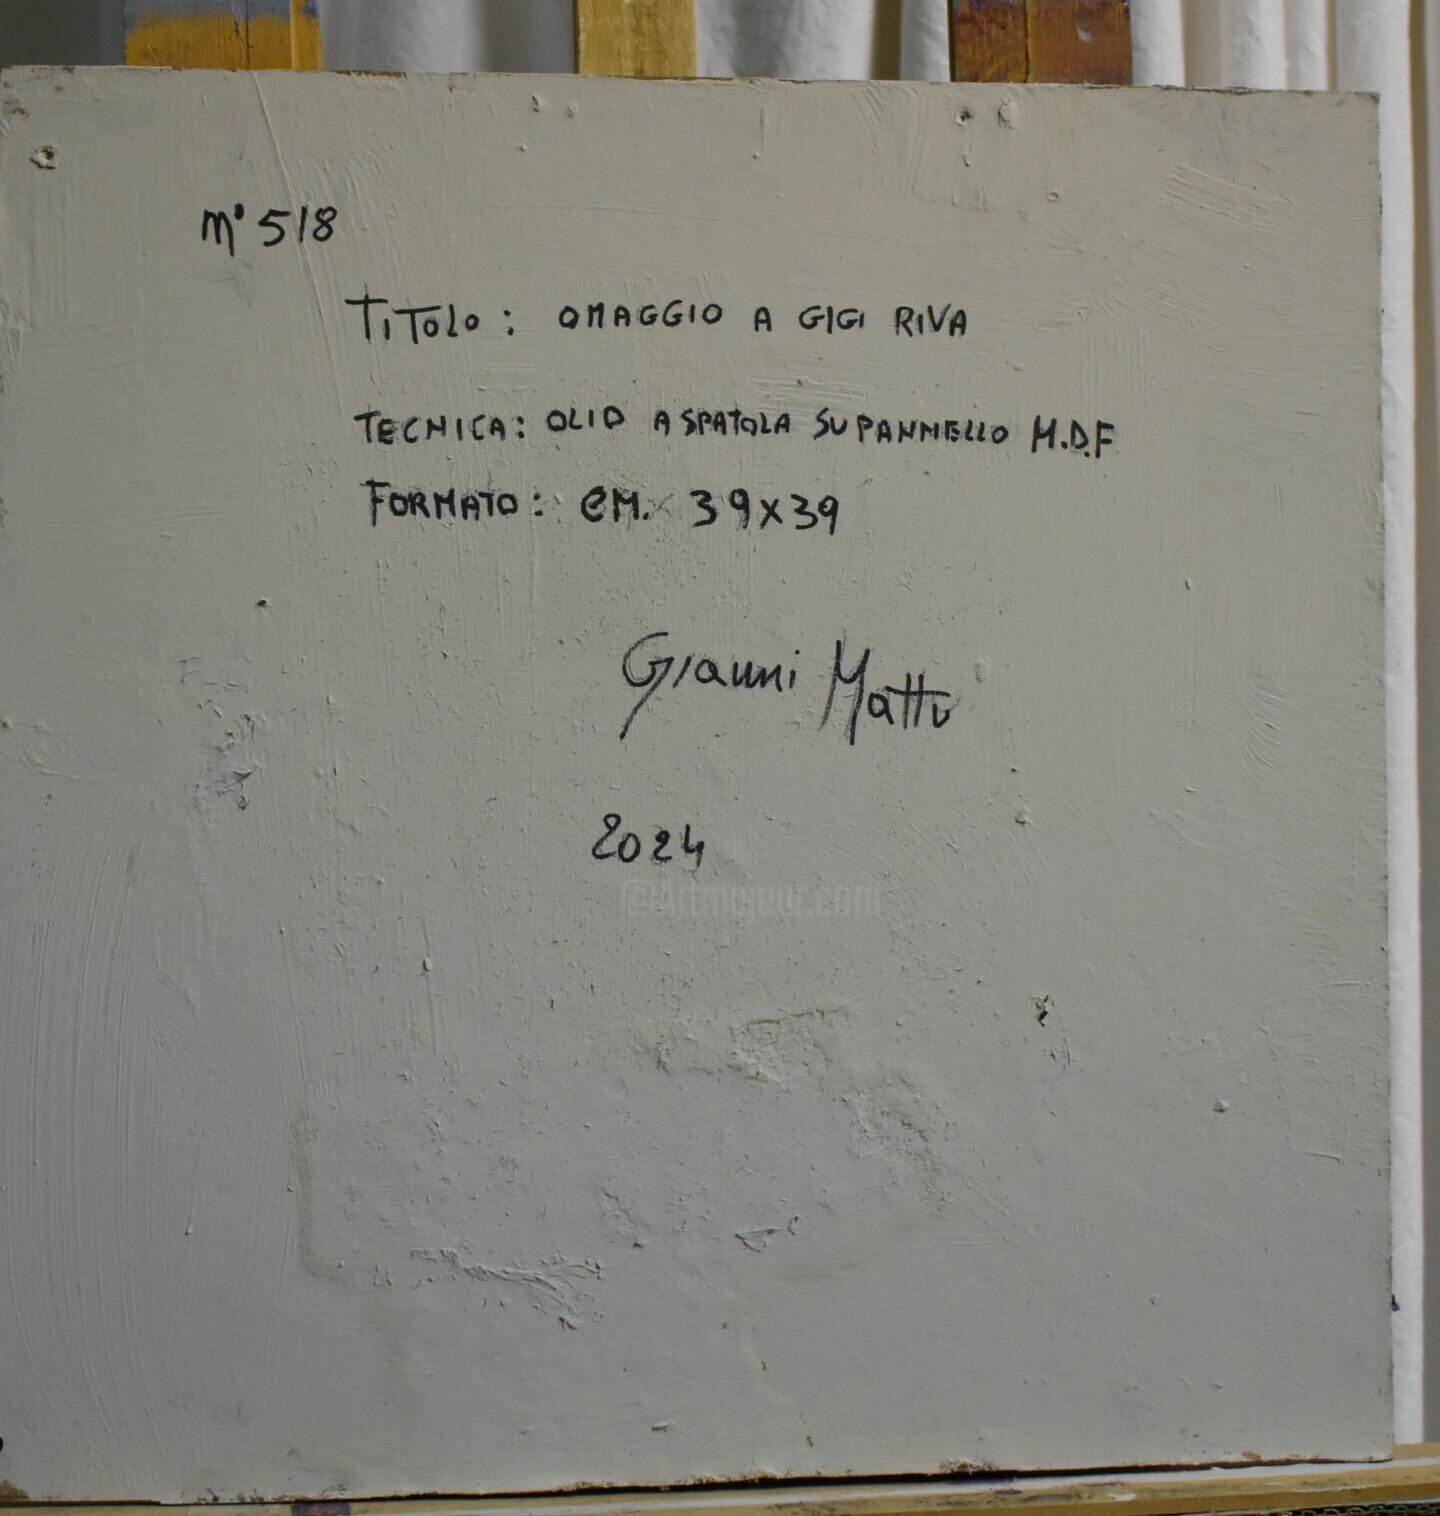 n° 518
TITOLO: OMAGGIO A GIGI RIVA
TECNICA: OLIO A SPATOLA SU PANNELLO M.D.F
FORMATO: CM. 39x39
Gianni Mattu
2024
@Artmajeur.com